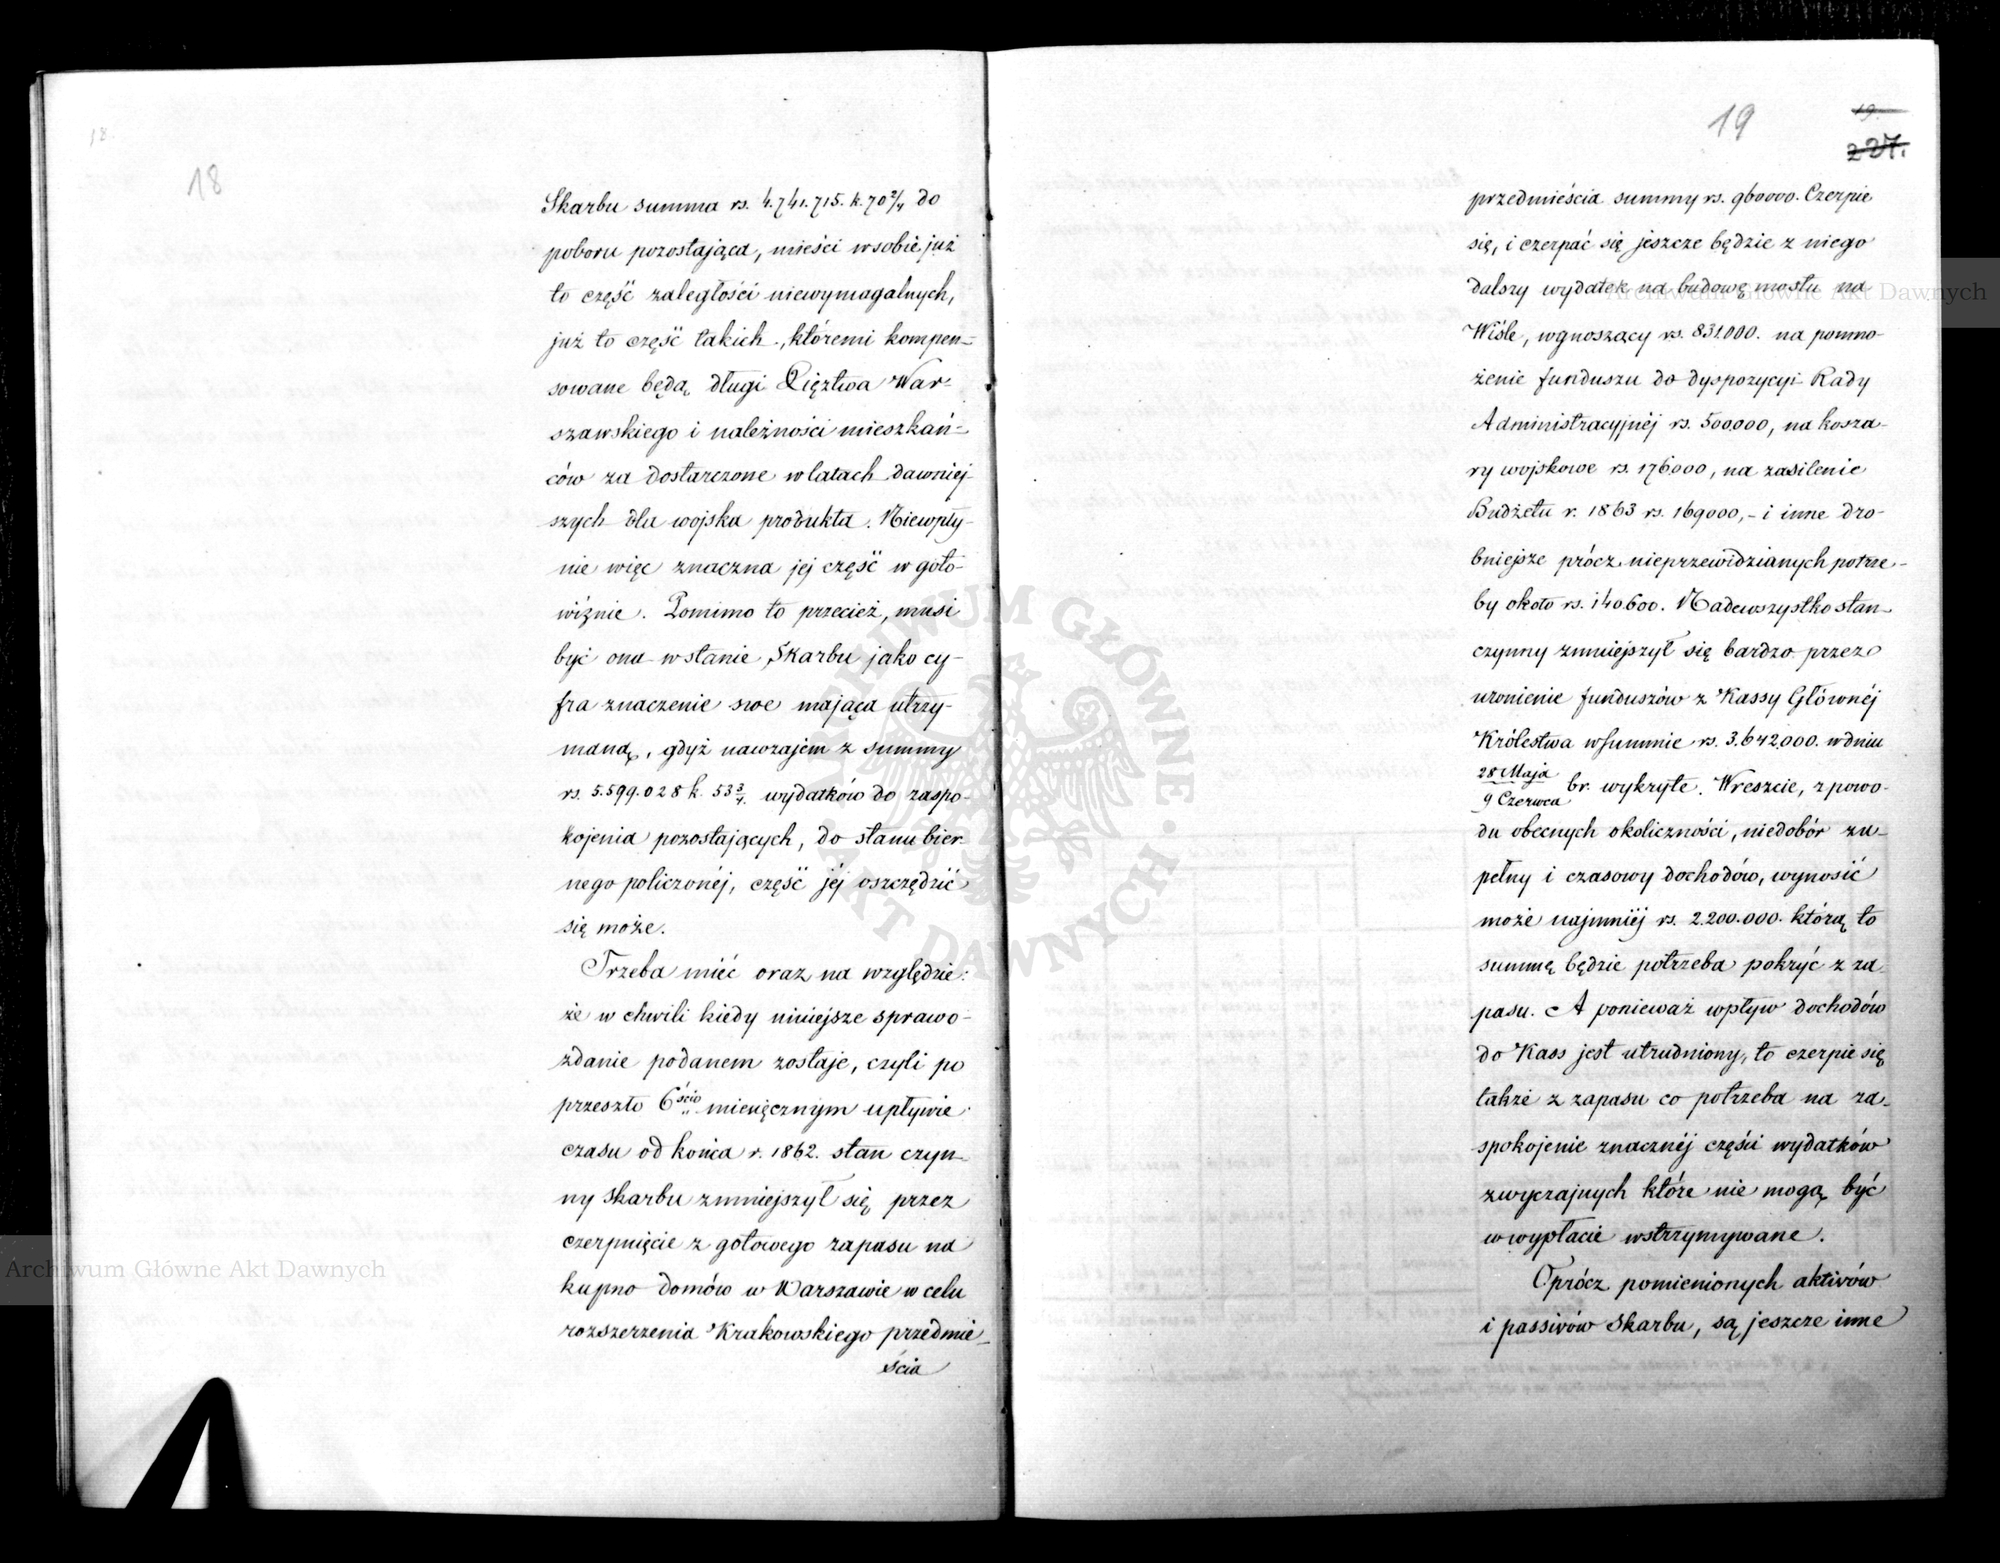 18.
18
Skarbu summa rs. 4.741.715. k. 70 2/4 do
poboru pozostająca, mieści w sobie już
to część zaległości niewymagalnych,
już to część takich, któremi kompen-
sowane będą długi Xięztwa War-
szawskiego i należności mieszkań-
ców za dostarczone w latach dawniej-
szych dla wojska produkta. Niewpły-
nie więc znaczna jej część w goto-
wiźnie. Pomimo to przecież, musi
być ona w stanie Skarbu jako cy-
fra znaczenie swe mająca utrzy-
maną, gdyż nawzajem z summy
rs. 5.599.028 k. 53 3/4. wydatków do zaspo-
kojenia pozostających, do stanu bier-
nego policzonéj, część jéj oszczędzić
się może.
Trzeba mieć oraz na względzie:
że w chwili kiedy niniejsze sprawo-
zdanie podanem zostaje, czyli po
przeszło 6ścio miesięcznym upływie
czasu od końca r. 1862. stan czyn-
ny Skarbu zmniejszył się przez
czerpnięcie z gotowego zapasu na
kupno domów w Warszawie w celu
rozszerzenia Krakowskiego przedmie-
ścia
19
19.
227.
przedmieścia summy rs. 960000. Czerpie
się, i czerpać się jeszcze będzie z niego
dalszy wydatek na budowę mostu na
Wiśle, wynoszący rs. 831.000. na pomno-
żenie funduszu do dyspozycyi Rady
Administracyjnéj rs. 500.000, na kosza-
ry wojskowe rs. 176.000, na zasilenie
Budżetu r. 1863 rs. 169000, - i inne dro-
bniejsze prócz nieprzewidzianych potrze-
by około rs. 140.600. Nadewszystko stan
czynny zmniejszył się bardzo przez
uronienie funduszów z Kassy Głównéj
Królestwa w summie rs. 3.642.000. w dniu
28 Maja
9 Czerwca br. wykryte. Wreszcie, z powo-
du obecnych okoliczności, niedobór zu-
pełny i czasowy dochodów, wynosić
może najmniéj rs. 2.200.000. którą to
summę będzie potrzeba pokryć z za-
pasu. A ponieważ wpływ dochodów
do Kass jest utrudniony, to czerpie się
także z zapasu co potrzeba na za-
spokojenie znacznéj części wydatków
zwyczajnych które nie mogą być
w wypłacie wstrzymywane.
Oprócz pomienionych aktivów
i passivów Skarbu, są jeszcze inne
ARCHIWUM GŁÓWNE AKT DAWNYCH
Archiwum Główne Akt Dawnych
Archiwum Główne Akt Dawnych